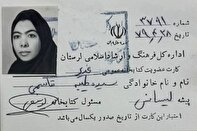 شماره ۳۷۹۱
تاریخ ۷۹/۶/۲۸
اداره کل فرهنگ و ارشاد اسلامی لرستان
کارت عضویت کتابخانه عمومی
نام و نام خانوادگی سیده قاسمی
پیشه لیسانس مسئول کتابخانه
اعتبار این کارت از تاریخ صدور یکسال می باشد